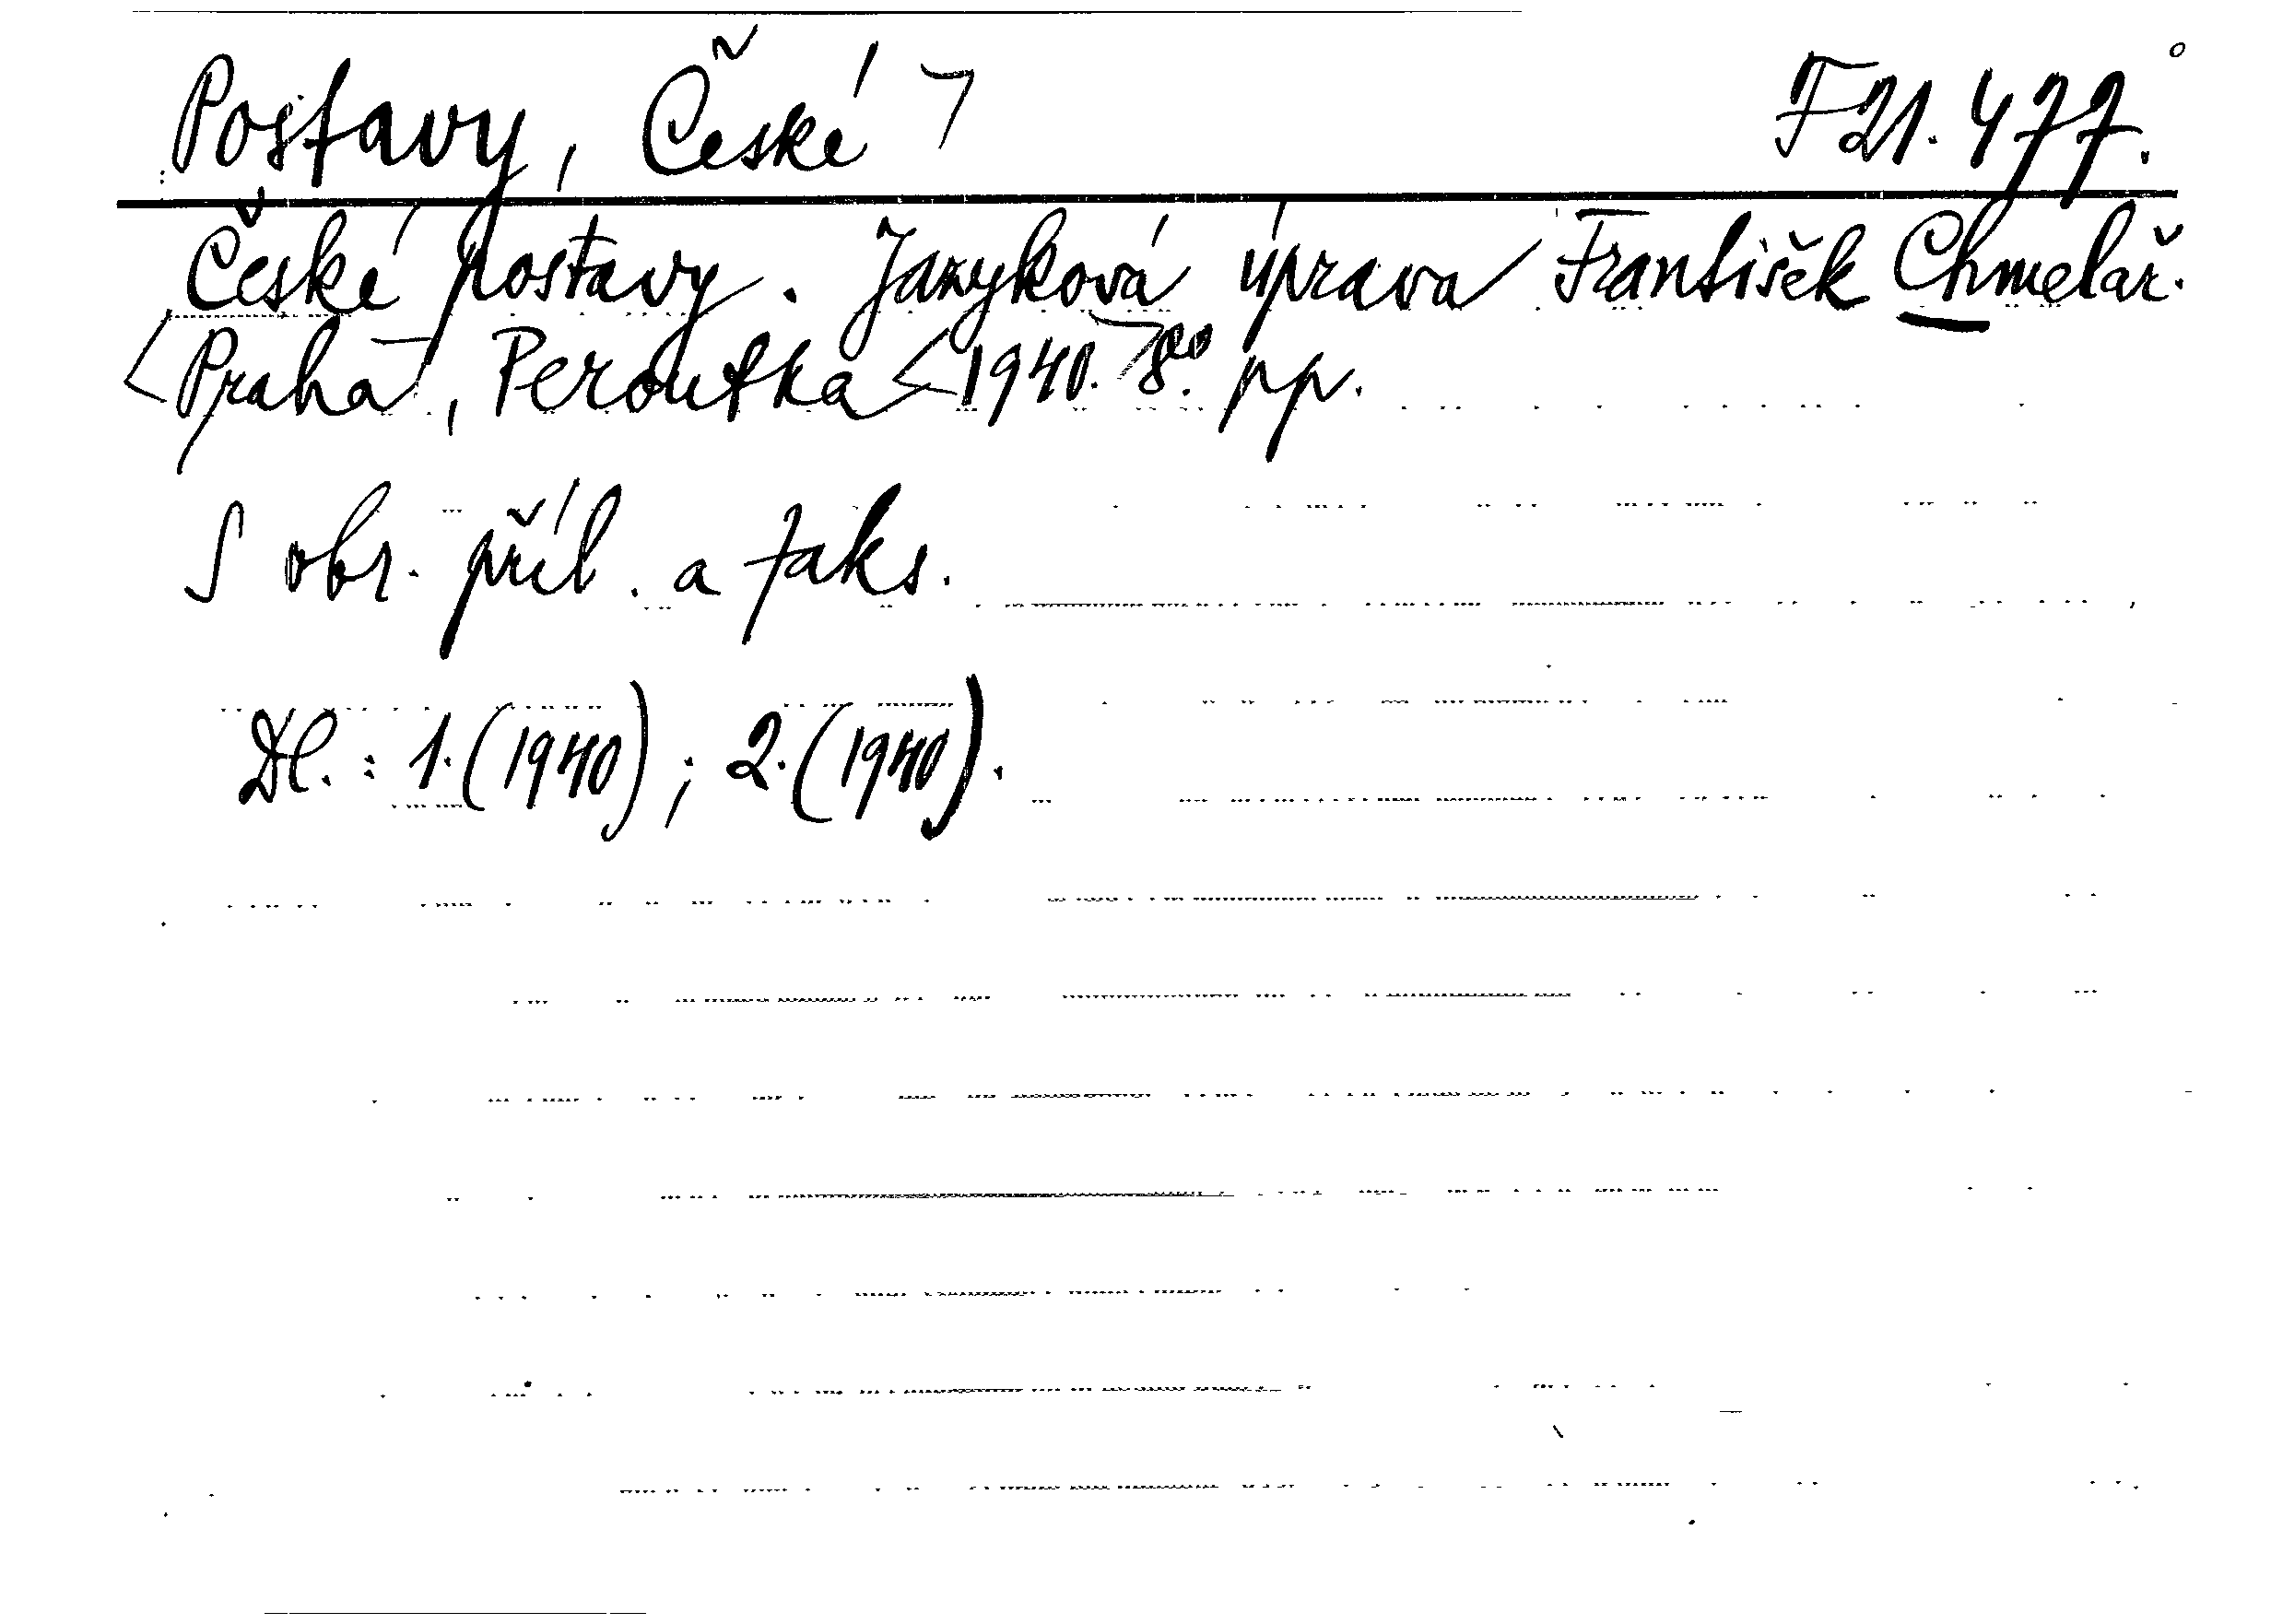 Postavy, České ⌝ F 21.477.
České postavy. Jazyková úprava František Chmelař.
<Praha⌝, Peroutka <1940.⌝ 8⁰. pp.
S obr. příl. a faks.
Dl.: 1.(1940); 2.(1940).